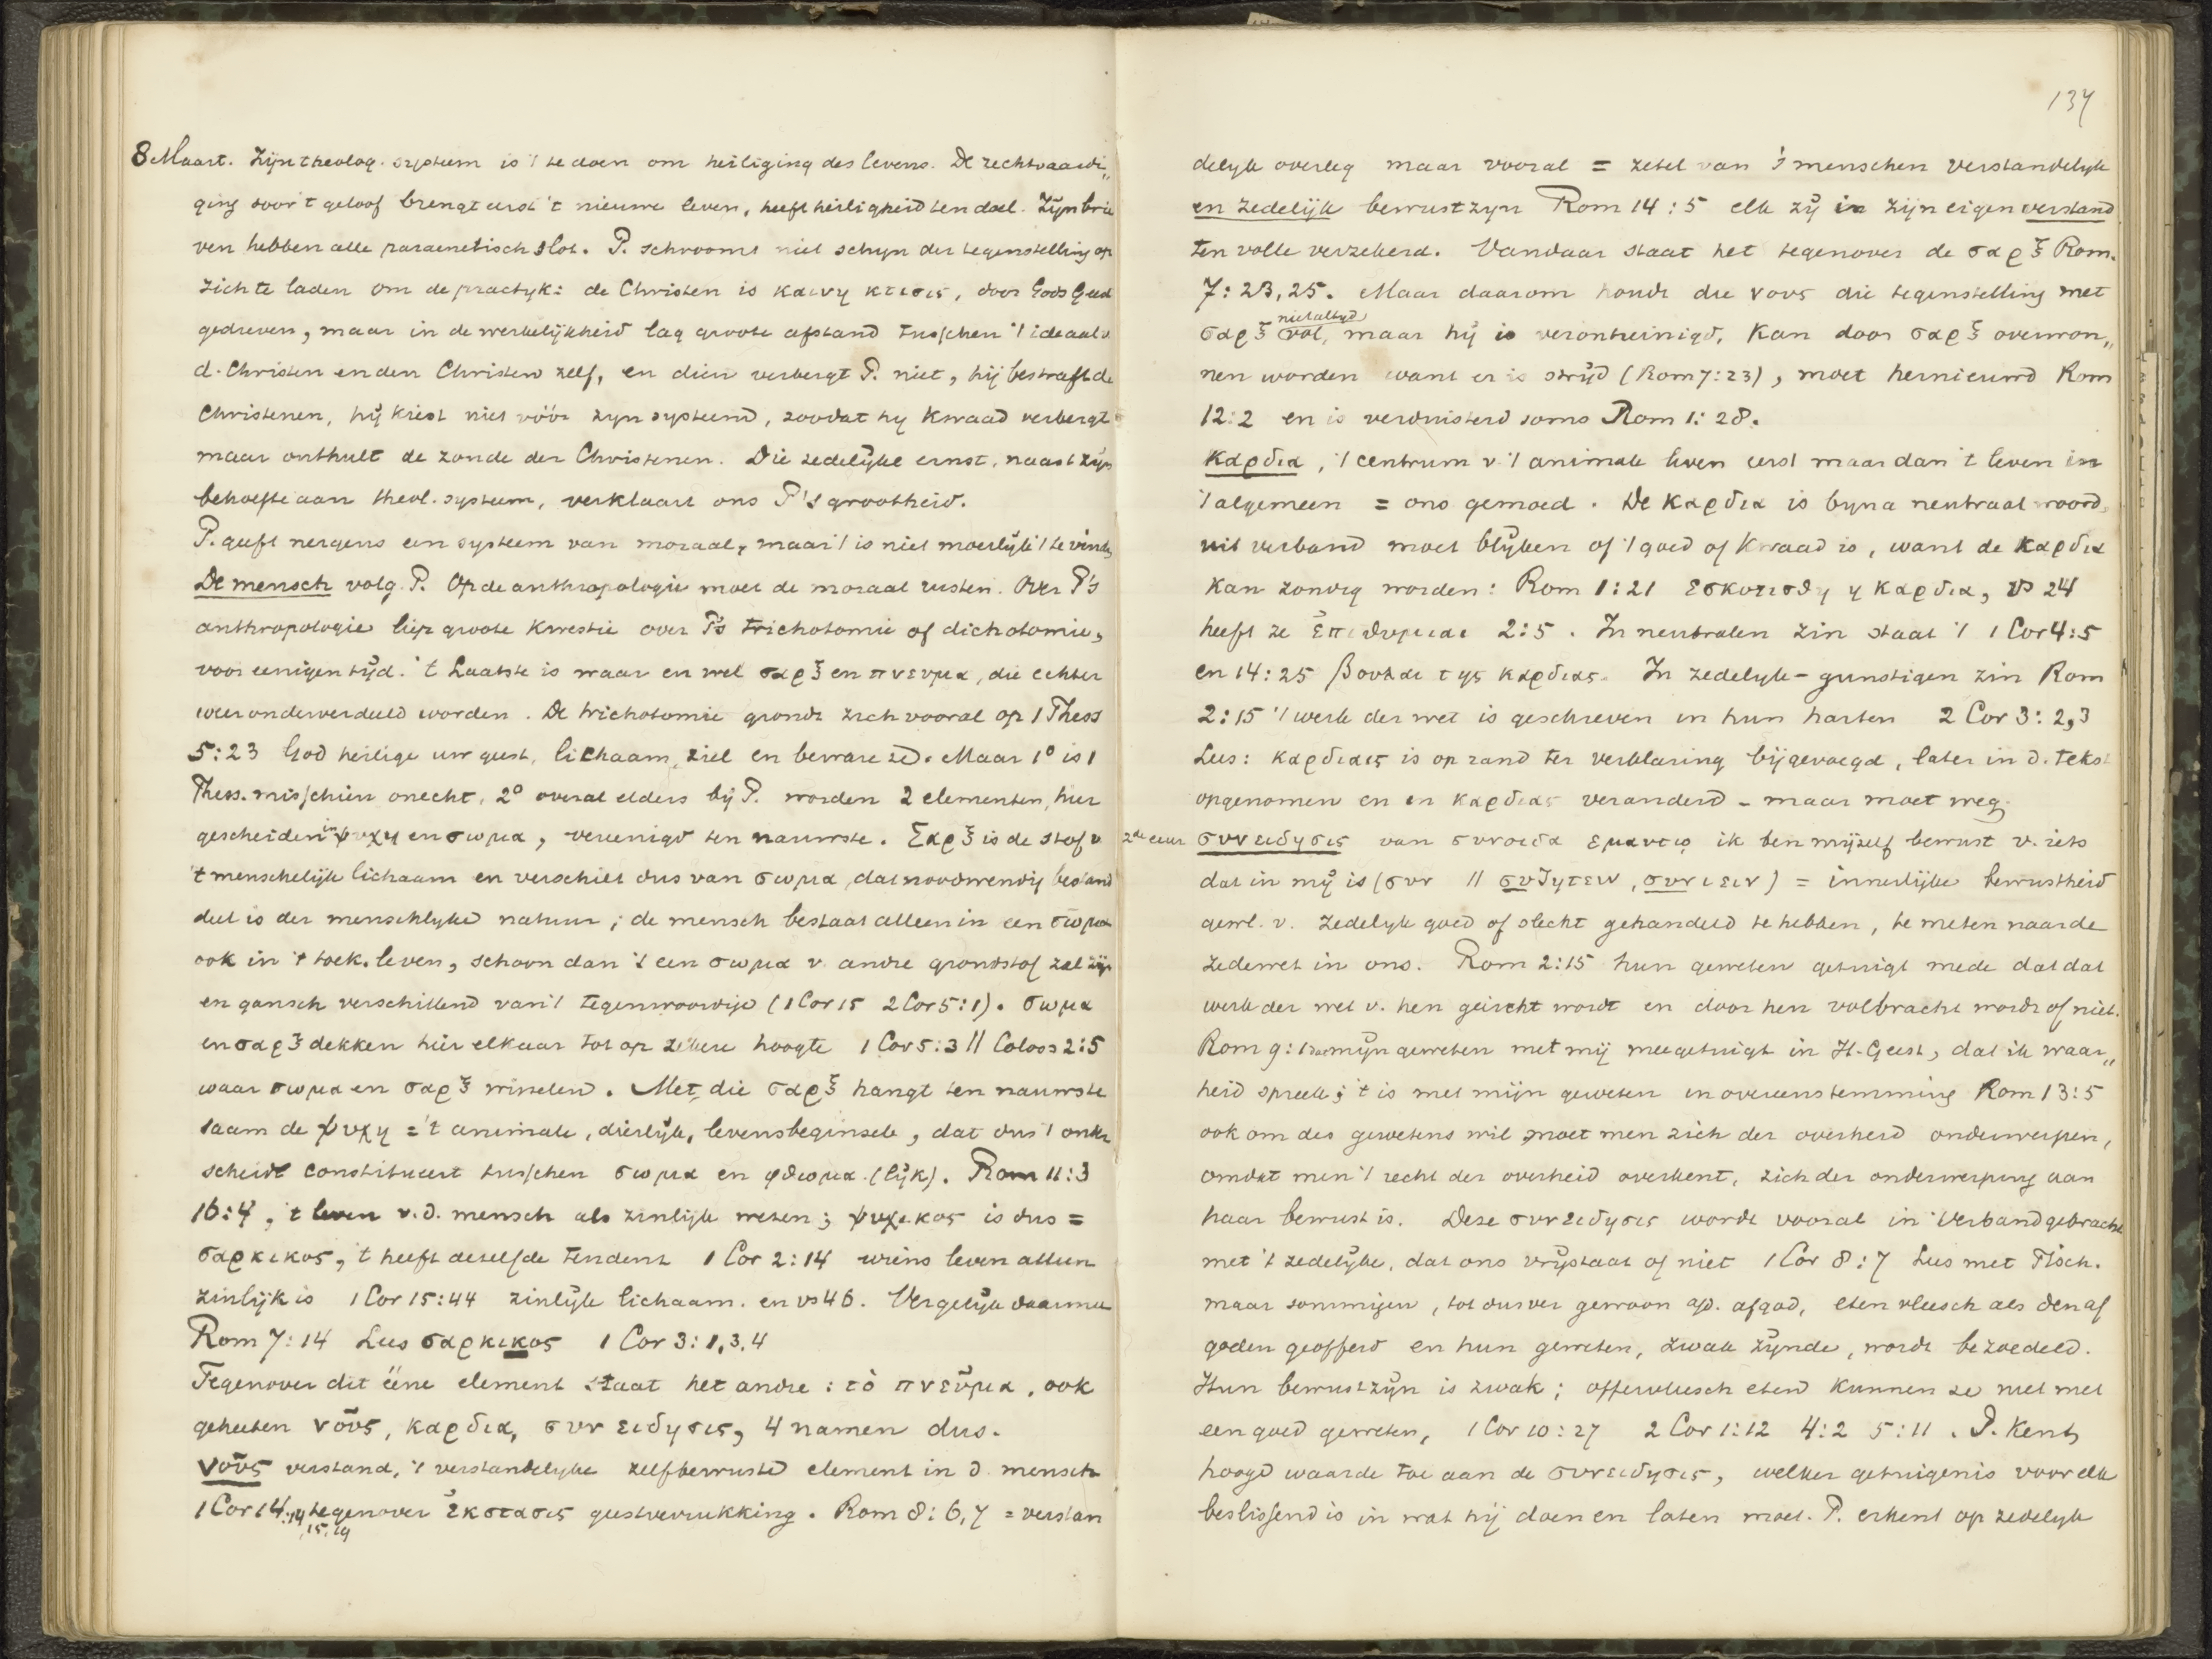 8 Maart. Zijn theolog. systeem is 't te doen om heiliging des levens. De rechtvaardi„
ging door 't geloof brengt eerst 't nieuwe leven, heeft heiligheid ten doel. Zijn brie
ven hebben alle paraenetisch slot. P. schroomt niet schijn der tegenstelling op
zich te laden om de practijk: de Christen is καινη κτισις, door Gods Geest
gedreven, maar in de werkelijkheid lag groote afstand tusschen 't ideaal v.
d. Christen en den Christen zelf, en dien verbergt P. niet, hij bestraft de
Christenen, hij kiest niet vóór zijn systeem, zoodat hij kwaad verbergt
maar onthult de zonde der Christenen. Die zedelijke ernst, naast zijn
behoefte aan theol. systeem, verklaart ons P's grootheid.
P. geeft nergens een systeem van moraal, maar 't is niet moeilijk 't te vinden
De mensch volg. P. Op de anthropologie moet de moraal rusten. Over P's
anthropologie liep groote kwestie over P's trichotomie of dichotomie,
voor eenigen tijd. 't Laatste is waar en wel σαρξ en πνευμα, die echter
weer onderverdeeld worden. De trichotomie grondt zich vooral op 1 Thess
5:23 God heilige uw geest, lichaam, ziel en beware ze. Maar 1° is 1
Thess. misschien onecht, 2° overal elders bij P. worden 2 elementen, hier
gescheiden in ψυχη en σωμα, vereenigd ten nauwste. Σαρξ is de stof v
't menschelijk lichaam en verschilt dus van σωμα, dat noodwendig bestand
deel is der menschlijke natuur; de mensch bestaat alleen in een σωμα
ook in 't toek. leven, schoon dan 't een σωμα v. andre grondstof zal zijn
en gansch verschillend van 't tegenwoordige (1 Cor 15 2 Cor 5:1). σωμα
en σαρξ dekken hier elkaar tot op zekere hoogte 1 Cor 5:3 || Coloss 2:5
waar σωμα en σαρξ wisselen. Met die σαρξ hangt ten nauwste
saam de ψυχη = 't animale, dierlijk, levensbeginsel, dat dus 't onder
scheid constitueert tusschen σωμα en φθωμα (lijk). Rom 11:3
16:4, 't leven v.d. mensch als zinlijk wezen; ψυχικος is dus =
σαρκικος, 't heeft dezelfde tendenz 1 Cor 2:14 wiens leven alleen
zinlijk is 1 Cor 15:44 zinlijk lichaam. en vs 46. Vergelijk daarmee
Rom 7:14 Lees σαρκικος 1 Cor 3:1,3,4
Tegenover dit ééne element staat het andre: τὸ πνεῦμα, ook
geheeten νοῦς, καρδια, συνειδησις, 4 namen dus.
νοῦς verstand, 't verstandelijke zelfbewuste element in d. mensch
1 Cor 14:14, tegenover ἐκστασις geestverrukking. Rom 8:6,7 = verstan
15,19
137
delijk overleg maar vooral = zetel van 's menschen verstandelijk
en zedelijk bewustzijn Rom 14:5 elk zij in zijn eigen verstand
ten volle verzekerd. Vandaar staat het tegenover de σαρξ Rom.
7:23,25. Maar daarom houdt die νους die tegenstelling met
niet altijd
σαρξ vol, maar hij is verontreinigd, kan door σαρξ overwon„
nen worden want er is strijd (Rom 7:23), moet hernieuwd Rom
12:2 en is verduisterd soms Rom 1:28.
καρδια, 't centrum v. 't animale leven eerst maar dan 't leven in
't algemeen = ons gemoed. De καρδια is bijna neutraal woord,
uit verband moet blijken of 't goed of kwaad is, want de καρδια
kan zondig worden: Rom 1:21 εσκοτισθη η καρδια, vs 24
heeft ze ἐπιθυμιαι 2:5. In neutralen zin staat 't 1 Cor 4:5
en 14:25 βουλαι της καρδιας. In zedelijk-gunstigen zin Rom
2:15 't werk der wet is geschreven in hun harten 2 Cor 3:2,3
Lees: καρδιαις is op rand ter verklaring bijgevoegd, later in d. tekst
opgenomen en in καρδιας veranderd - maar moet weg.
2de eeuw συνειδησις van συνοιδα εμαυτῳ ik ben mijzelf bewust v. iets
dat in mij is (συν || συζητειν, συνιειν) = innerlijke bewustheid
gewl. v. zedelijk goed of slecht gehandeld te hebben, te meten naar de
zedewet in ons. Rom 2:15 hun geweten getuigt mede dat dat
werk der wet v. hen geëischt wordt en door hen volbracht wordt of niet.
Rom 9:1 daar mijn geweten met mij meegetuigt in H. Geest, dat ik waar„
heid spreek; 't is met mijn geweten in overeenstemming Rom 13:5
ook om des gewetens wil moet men zich der overheid onderwerpen,
omdat men 't recht der overheid erkent, zich der onderwerping aan
haar bewust is. Deze συνειδησις wordt vooral in verband gebracht
met 't zedelijke, dat ons vrijstaat of niet 1 Cor 8:7 Lees met Tisch.
maar sommigen, tot dusver gewoon a/d. afgod, eten vleesch als den af
goden geofferd en hun geweten, zwak zijnde, wordt bezoedeld.
Hun bewustzijn is zwak; offervleesch eten kunnen ze niet met
een goed geweten, 1 Cor 10:27 2 Cor 1:12 4:2 5:11. P. kent
hooge waarde toe aan de συνειδησις, welker getuigenis voor elk
beslissend is in wat hij doen en laten moet. P. erkent op zedelijk